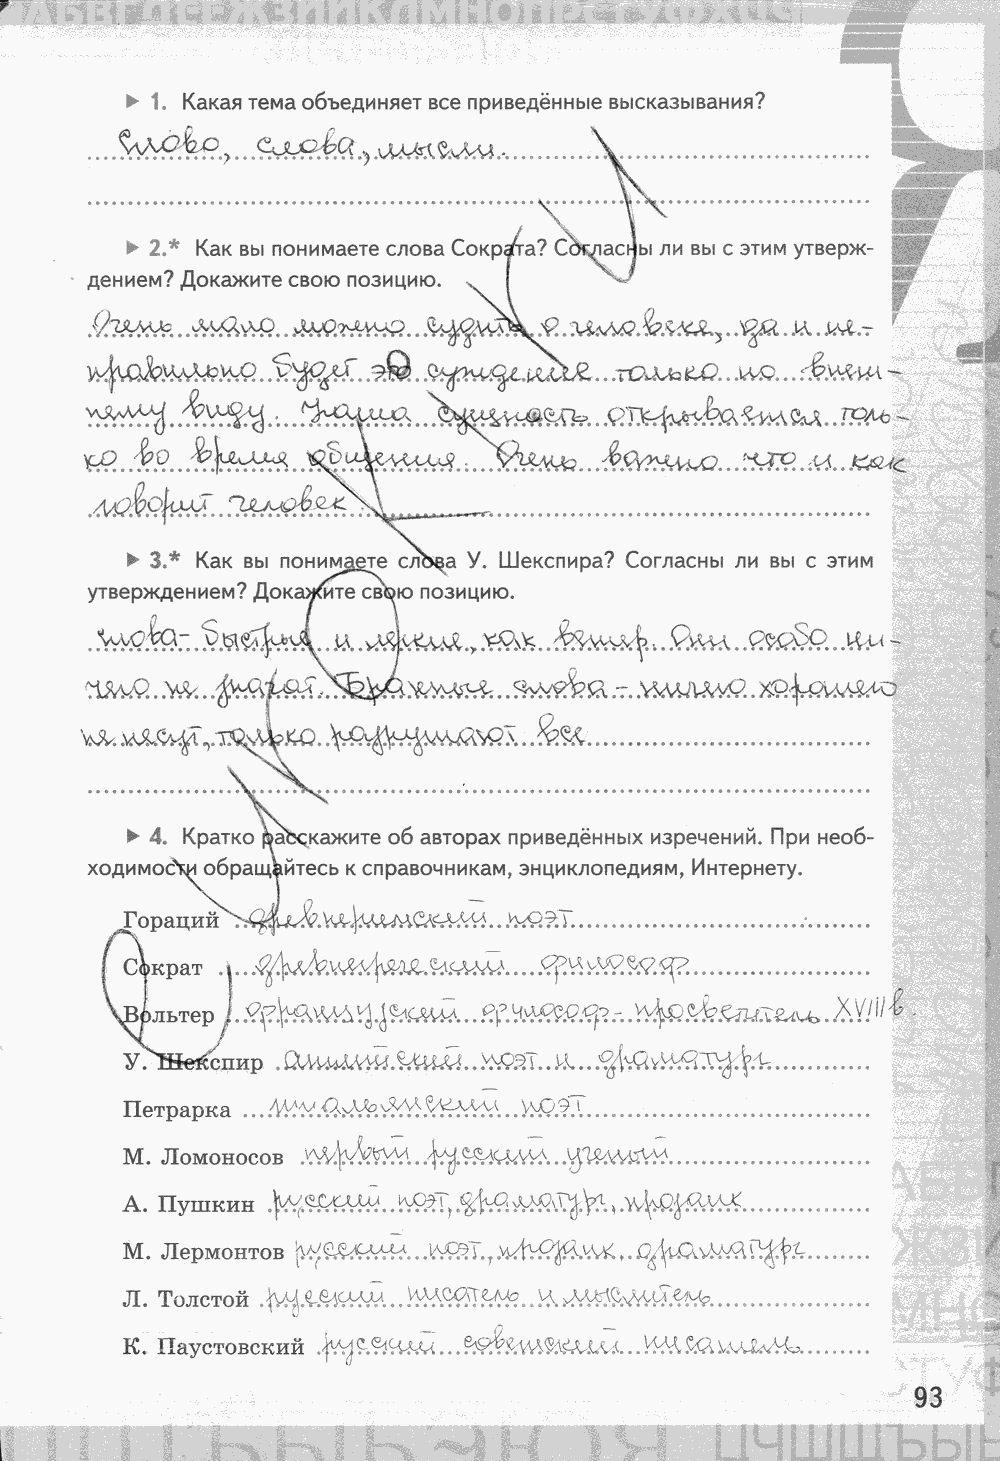 ▶ 1. Какая тема объединяет все приведённые высказывания?
Слово, слова, мысли.
▶ 2.* Как вы понимаете слова Сократа? Согласны ли вы с этим утверж-
дением? Докажите свою позицию.
Очень мало можно судить о человеке, да и не-
правильно будет это суждение только по внеш-
нему виду. Наша сущность открывается толь-
ко во время общения. Очень важно что и как
говорит человек.
▶ 3.* Как вы понимаете слова У. Шекспира? Согласны ли вы с этим
утверждением? Докажите свою позицию.
Слова- быстрые и легкие, как ветер. Они особо ни-
чего не значат. Бранные слова - ничего хорошего
не несут, только разрушают все
▶ 4. Кратко расскажите об авторах приведённых изречений. При необ-
ходимости обращайтесь к справочникам, энциклопедиям, Интернету.
Гораций древнеримский поэт
Сократ древнегреческий философ
Вольтер французский философ- просветитель XVIII в.
У. Шекспир английский поэт и драматург
Петрарка итальянский поэт
М. Ломоносов первый русский ученый
А. Пушкин русский поэт, драматург, прозаик
М. Лермонтов русский поэт, прозаик, драматург
Л. Толстой русский писатель и мыслитель
К. Паустовский русский советский писатель
93